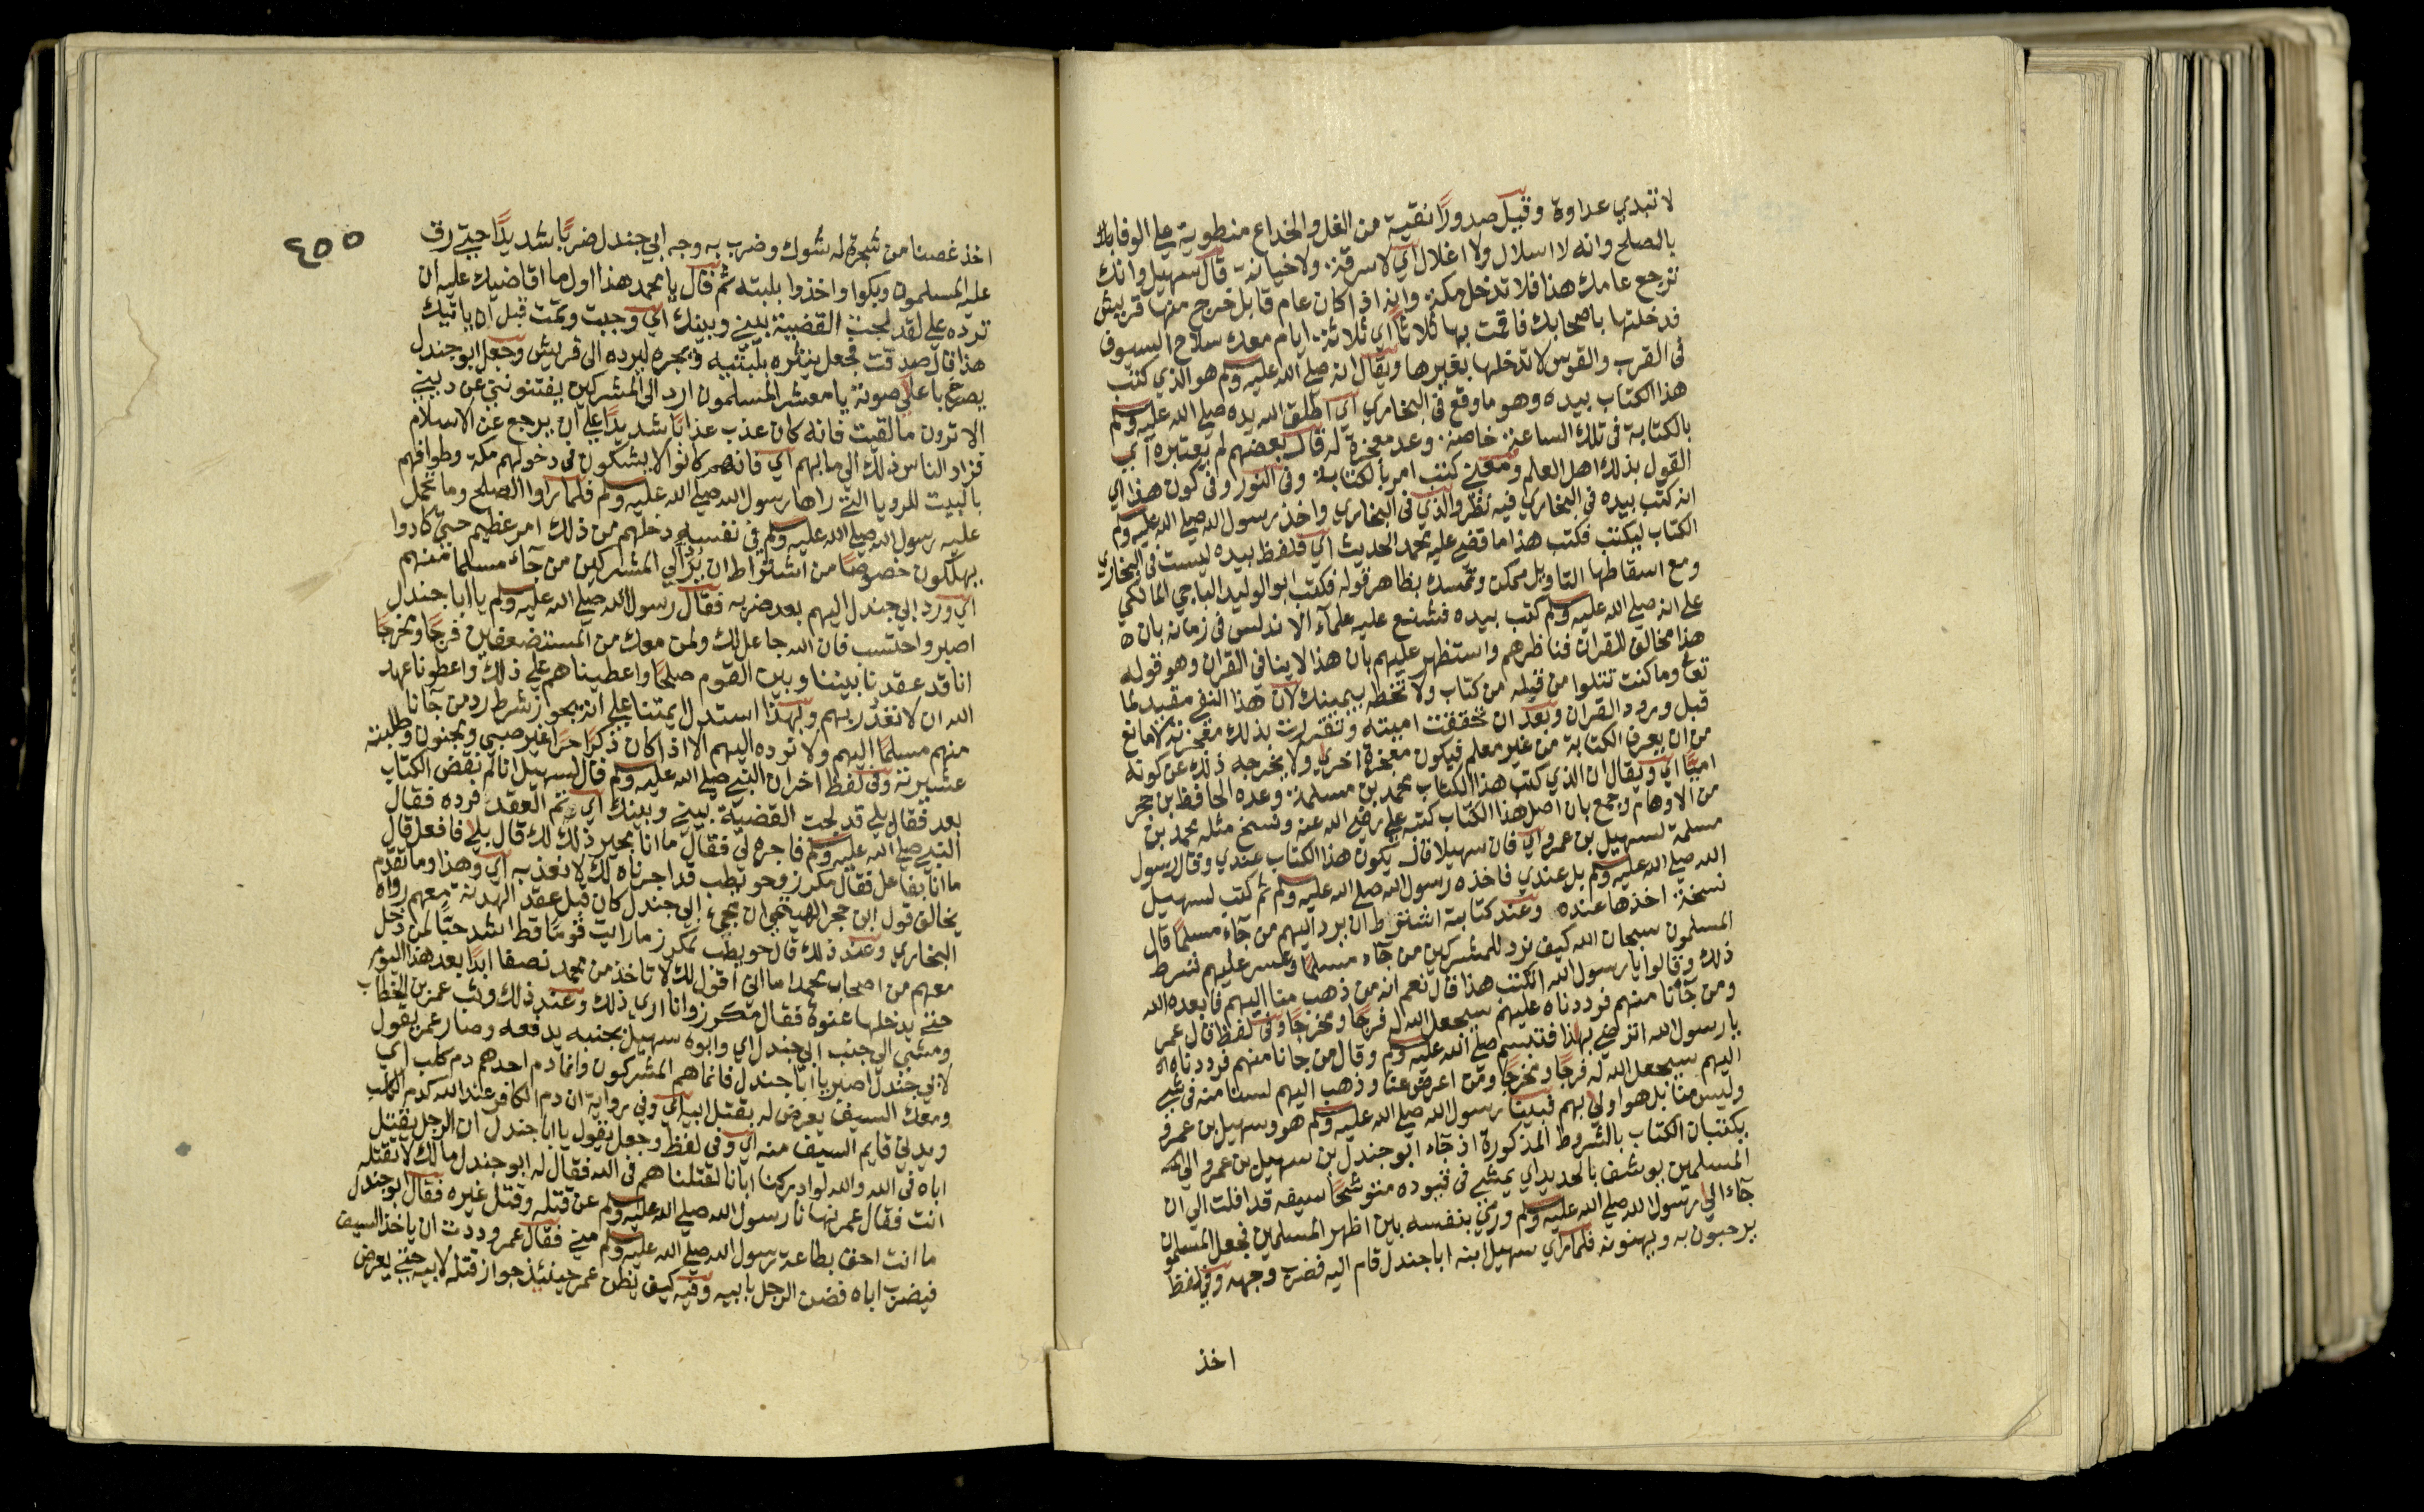 لا تبدي عداوة وقيل صدورًا نقية من الغل والخداع منطوية على الوفا بالـ
بالصلح وانه لا اسلال ولا اغلال اي لا سرقة ولا خيانة قال سهيل وانك
ترجع عامك هذا فلا تدخل مكة وانه اذا كان عام قابل خرج منها قريش
فدخلتها باصحابك فاقمت بها ثلاثًا اي ثلاثة ايام معك سلاح السيوف
فى القرب والقوس لا تدخلها بغيرها ويقال انه صلى الله عليه وسلم هو الذي كتب
هذا الكتاب بيده وهو ما وقع فى البخاري اي اطلق الله يده صلى الله عليه وسلم
بالكتابة فى تلك الساعة خاصة وعد معجزة له قال بعضهم لم يعتبره اي
القول بذلك اهل العلم ومعنى كتب امر بالكتابة وفى النور وفى كون هذا اي
انه كتب بيده في البخاري فيه نظر والذي فى البخاري واخذ رسول الله صلى الله عليه وسلم
الكتاب ليكتب فكتب هذا ما قضى عليه محمد الحديث اي فلفظ بيده ليست فى البخاري
ومع اسقاطها التاويل ممكن وتمسك بظاهر قوله فكتب ابو الوليد الباجي المالكي
على انه صلى الله عليه وسلم كتب بيده فشنع عليه علمآء الاندلس فى زمانه بان ه
هذا مخالف للقران فناظرهم واستظهر عليهم بان هذا لا ينافى القران وهو قوله
تعالى وما كنت تتلوا من قبله من كتاب ولا تخطه بيمينك لان هذا النفى مقيد لما
قبل ورود القران وبعد ان تحققت اميته وتقررت بذلك معجزته لا مانع
من ان يعرف الكتابة من غير معلم فيكون معجزة اخري ولا يخرجه ذلك عن كونه
اميًا اي ويقال ان الذي كتب هذا الكتاب محمد بن مسلمة وعده الحافظ بن حجر
من الاوهام وجمع بان اصل هذا الكتاب كتبه علي رضى الله عنه ونسخ مثله محمد بن
مسلمة لسهيل بن عمرو اي فان سهيلا قال يكون هذا الكتاب عندي وقال رسول
الله صلى الله عليه وسلم بل عندي فاخذه رسول الله صلى الله عليه وسلم ثم كتب لسهيل
نسخة اخذها عنده وعند كتابة اشترط ان يرد اليهم من جآء مسلمًا قال
المسلمون سبحان الله كيف نرد للمشركين من جآء مسلمًا وعسر عليهم شرط
ذلك وقالوا يا رسول الله انكتب هذا قال نعم انه من ذهب منا اليهم فابعده الله
ومن جآنا منهم فرددناه عليهم سيجعل الله له فرجًا ومخرجًا وفى لفظ قال عمر
يا رسول الله اترضى بهذا فتبسم صلى الله عليه وسلم وقال من جانا منهم فرددناه
اليهم سيجعل الله له فرجًا ومخرجًا ومن اعرض عنا وذهب اليهم لسنا منه فى شي
وليس منا بل هو اولى بهم فبينا رسول الله صلى الله عليه وسلم هو وسهيل بن عمرو
يكتبان الكتاب بالشروط المذكورة اذ جآء ابو جندل بن سهيل بن عمرو الى
المسلمين يوسف بالحديد اي يمشي فى قيوده متوشحًا سيفه قد افلت الى ان
جآء الى رسول الله صلى الله عليه وسلم ورمى بنفسه بين اظهر المسلمين فجعل المسلمو
يرحبون به ويهنونه فلما راي سهيل ابنه ابا جندل قام اليه فضرب وجهه وفى لفظ
اخذ
٤٥٥
اخذ غصنا من شجرة له شوك وضرب به وجه ابي جندل ضربًا شديدًا حتى رق
عليه المسلمون وبكوا واخذوا بلبته ثم قال يا محمد هذا اول ما اقاضيك عليه ان
ترده على لقد لجت القضية بيني وبينك اي وجبت وتمت قبل ان ياتيك
هذا قال صدقت فجعل ينتره بلبته ويجره ليرده الى قريش وجعل ابو جندل
يصرخ باعلى صوته يا معشر المسلمون ارد الى المشركين يفتنونني عن ديني
الا ترون ما لقيت فانه كان عذب عذابًا شديدًا على ان يرجع عن الاسلام
فزاد الناس ذلك الى ما بهم اي فانهم كانوا لا يشكون فى دخولهم مكة وطوافهم
بالبيت للرويا التي راها رسول الله صلى الله عليه وسلم فلما راوا الصلح وما تحمل
عليه رسول الله صلى الله عليه وسلم فى نفسه دخلهم من ذلك امر عظيم حتى كادوا
يهلكون خصوصًا من اشتراط ان يرد الى المشركين من جآء مسلما منهم
اي ورد ابي جندل اليهم بعد ضربه فقال رسول الله صلى الله عليه وسلم يا ابا جندل
اصبر واحتسب فان الله جاعل لك ولمن معك من المستضعفين فرجًا ومخرجًا
انا قد عقدنا بيننا وبين القوم صلحًا واعطيناهم على ذلك واعطونا عهد
الله ان لا نغدر بهم وبهذا استدل ايمتنا على انه يجوز شرط رد من جآنا
منهم مسلمًا اليهم ولا نرده اليهم الا اذا كان ذكرًا حرًا غير صبي ومجنون وطلبته
عشيرته وفى لفظ اخر ان النبي صلى الله عليه وسلم قال لسهيل انا لم نقض الكتاب
بعد فقال بلى قد لجت القضية بيني وبينك اي تم العقد فرده فقال
النبي صلى الله عليه وسلم فاجره لى فقال ما انا بمجير ذلك لك قال بلى فافعل قال
ما انا بفاعل فقال مكرز وحويطب قد اجرناه لك لا نعذبه اي وهذا وما تقدم
يخالف قول ابن حجر الهيتمي ان مجيء ابي جندل كان قبل عقد الهدنة معهم رواه
البخاري وعند ذلك قال حويطب لمكرز ما رايت قومًا قط اشد حبًا لمن دخل
معهم من اصحاب محمد اما اني اقول لك لا تاخذ من محمد نصفا ابدًا بعد هذا اليوم
حتى يدخلها عنوة فقال مكرز وانا اري ذلك وعند ذلك وثب عمر بن الخطاب
ومشي الى جنب ابي جندل اي وابوه سهيل بجنبه يدفعه وصار عمر يقول
لابي جندل اصبر يا ابا جندل فانما هم المشركون وانما دم احدهم دم كلب اي
ومعك السيف يعرض له بقتل ابيه اي وفى رواية ان دم الكافر عند الله كدم الكلب
ويدني قايم السيف منه اي وفى لفظ وجعل يقول يا ابا جندل ان الرجل يقتل
اباه فى الله والله لو ادركنا ابانا لقتلناهم فى الله فقال له ابو جندل مالك لا تقتله
انت فقال عمر نهانا رسول الله صلى الله عليه وسلم عن قتله وقتل غيره فقال ابو جندل
ما انت احق بطاعة رسول الله صلى الله عليه وسلم مني فقال عمر وددت ان ياخذ السيف
فيضرب اباه فضن الرجل بابيه وفيه كيف يظن عمر حينيذ جواز قتله لابيه حتى يعرض